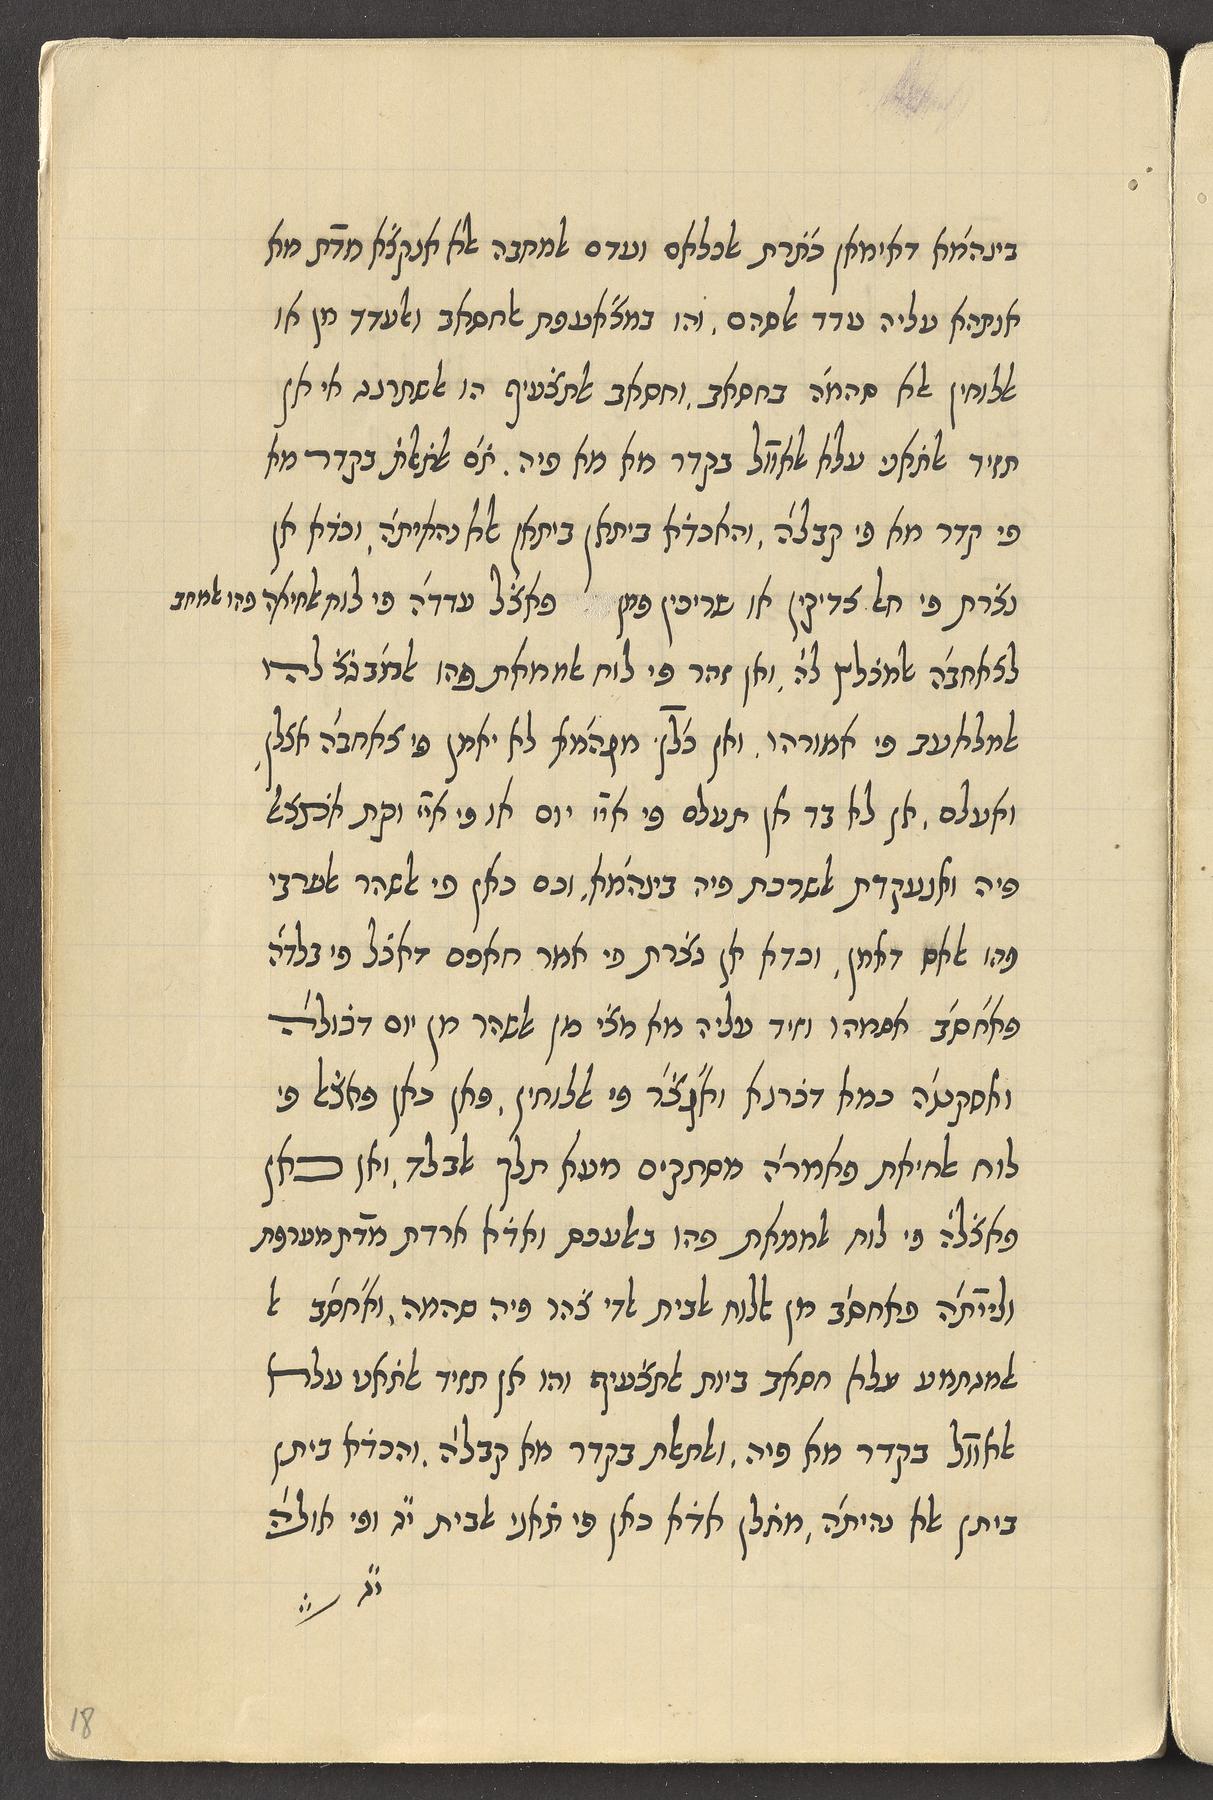 בינהמא דאימאן כתרת אלכלאם ועדם אלמחבה אלא אנקצא מדת מא
אנתהא עליה עדד אלסהם. והו במצאעפת אלחסאב ואלעדד מן או
אללוחין אלא סהמה בחסאב. וחסאב אלתצעיף הו אלשתרנג אי אן
תזיד אלתאני עלא אלאוול בקדר מא מא פיה. תם אלתאלת בקדר מא
פי קדר מא פי קבלה, והאכדא ביתאן ביתאן אלא נהאיתה, וכדא אן
נצרת פי חאל צדיקין או שריכין פמן פאצל עדדה פי לוח אלחיאה פהו אלמחב
לצאחבה אלמכלץ לה, ואן זהר פי לוח אלממאת פהו אלמבגץ להו
אלמלאעב פי אמורהו. ואן כאן מנהמא לא יאמן פי צאחבה אצלן,
ואעלם, אן לא בד אן תעלם פי איי יום או פי איי וקת
פיה ואנעקדת אלשרכת פיה בינהמא, וכם כאן פי אלשהר אלערבי
פהו דאמן, וכדא אן נצרת פי אמר חאכם דאכל פי בלדה
פאחסב אסמהו וזיד עליה מא מצי מן אלשהר מן יום דכולה
ואסקטה כמא דכרנא ואנצר פי אללוחין, פאן כאן פאצל פי
לוח אלחיאת פאמרה מסתקים מעא תלך אלבלד, ואן כאן
פאצלה פי לוח אלממאת פהו באלעכס ואדא ארדת מדת מערפת
ולייתה פאחסב מן אללוח אלבית אלדי צהר פיה סהמה, ואחסב א
אלמגתמע עלא חסאב ביות אלתצעיף והו אן תזיד אלתאני עלא
אלאוול בקדר מא פיה, ואלתאלת בקדר מא קבלה. והכדא ביתן
ביתן אלא נהיתה, מתלן אדא כאן פי תאני אלבית י״ג ופי אולה
י״ג
18